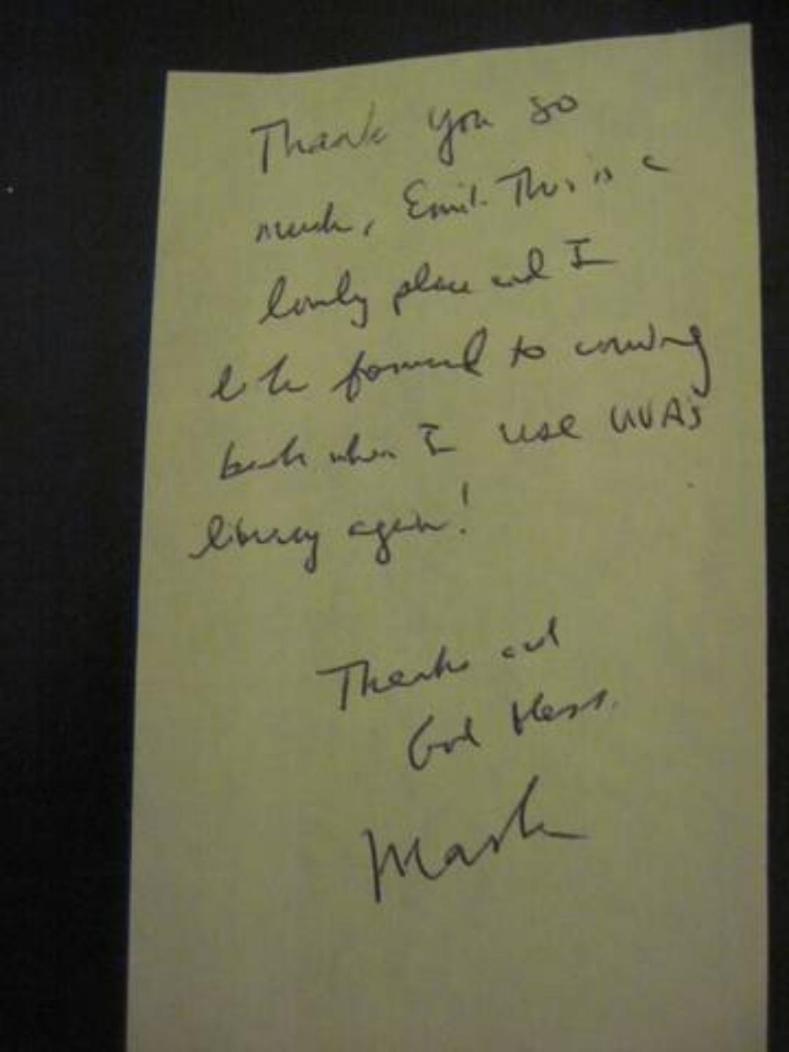 Thank you so
much, Emil. This is a
lovely place and I
look forward to coming
back when I use UVA's
library again!
Thanks and
God bless.
Mark